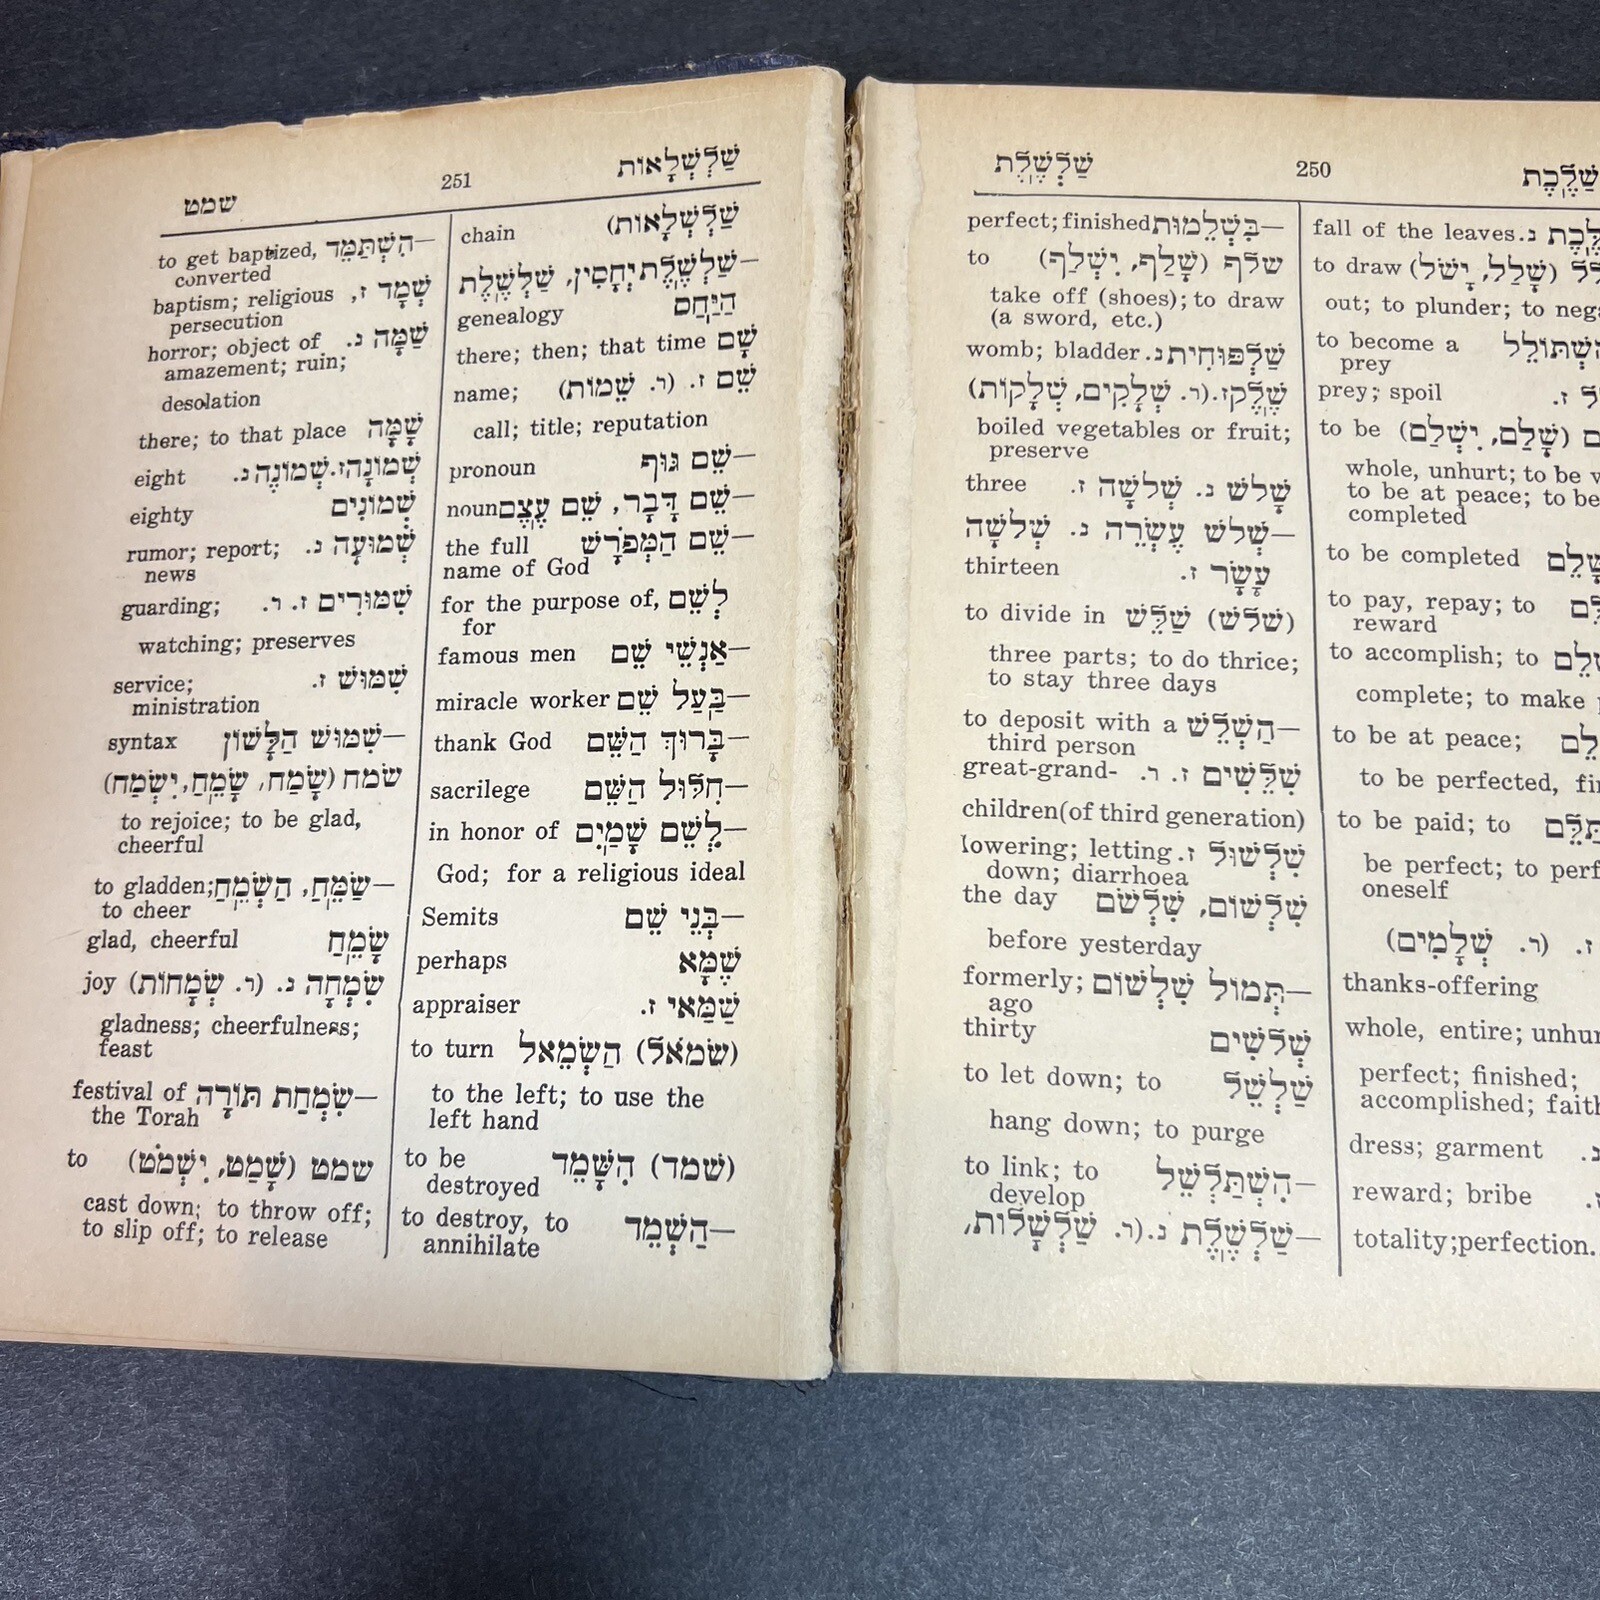 שַׁלְשֶׁלֶת 250 שַׁלֶּכֶת
fall of the leaves. נ.
(שָׁלַל, יָשֹׁל) to draw
out; to plunder; to
to become a
prey
ז. prey; spoil
(שָׁלַם, יִשְׁלַם) to be
whole, unhurt; to be
to be at peace; to be
completed
to be completed
to pay, repay; to
reward
to accomplish; to
complete; to make
to be at peace;
to be perfected,
to be paid; to
be perfect; to
oneself
ז. (ר. שְׁלָמִים)
thanks-offering
whole, entire;
perfect; finished;
accomplished;
dress; garment
reward; bribe
totality; perfection.
—בִּשְׁלֵמוּת perfect; finished
שלף (שָׁלַף, יִשְׁלַף) to
take off (shoes); to draw
(a sword, etc.)
שַׁלְפּוּחִית נ. womb; bladder
שֶׁלֶק ז. (ר. שְׁלָקִים, שְׁלָקוֹת)
boiled vegetables or fruit;
preserve
שָׁלשׁ נ. שְׁלשָׁה ז. three
—שְׁלשׁ עֶשְׂרֵה נ. שְׁלשָׁה
עָשָׂר ז. thirteen
(שלש) שַׁלֵּשׁ to divide in
three parts; to do thrice;
to stay three days
—הַשְׁלֵשׁ to deposit with a
third person
שִׁלֵּשִׁים ז. ר. great-grand-
children(of third generation)
שִׁלְשׁוּל ז. lowering; letting
down; diarrhoea
שִׁלְשׁוֹם, שִׁלְשֹׁם the day
before yesterday
—תְּמוֹל שִׁלְשׁוֹם formerly;
ago
שְׁלשִׁים thirty
שַׁלְשֵׁל to let down; to
hang down; to purge
—הִשְׁתַּלְשֵׁל to link; to
develop
—שַׁלְשֶׁלֶת נ. (ר. שַׁלְשָׁלוֹת,
שמט 251 שַׁלְשְׁלָאוֹת
שַׁלְשְׁלָאוֹת) chain
—שַׁלְשֶׁלֶת יֻחֲסִין, שַׁלְשֶׁלֶת
הַיַּחַס genealogy
שָׁם there; then; that time
שֵׁם ז. (ר. שֵׁמוֹת) name;
call; title; reputation
—שֵׁם גּוּף pronoun
—שֵׁם דָּבָר, שֵׁם עֶצֶם noun
—שֵׁם הַמְּפֹרָשׁ the full
name of God
לְשֵׁם for the purpose of,
for
—אַנְשֵׁי שֵׁם famous men
—בַּעַל שֵׁם miracle worker
—בָּרוּךְ הַשֵּׁם thank God
—חִלּוּל הַשֵּׁם sacrilege
—לְשֵׁם שָׁמַיִם in honor of
God; for a religious ideal
—בְּנֵי שֵׁם Semits
שֶׁמָּא perhaps
שַׁמַּאי ז. appraiser
(שׂמאל) הַשְׂמֵאל to turn
to the left; to use the
left hand
(שמד) הִשָּׁמֵד to be
destroyed
—הַשְׁמֵד to destroy, to
annihilate
—הִשְׁתַּמֵּד to get baptized,
converted
שְׁמָד ז. baptism; religious
persecution
שַׁמָּה נ. horror; object of
amazement; ruin;
desolation
שָׁמָּה there; to that place
שְׁמוֹנָה ז. שְׁמוֹנֶה נ. eight
שְׁמוֹנִים eighty
שְׁמוּעָה נ. rumor; report;
news
שִׁמּוּרִים ז. ר. guarding;
watching; preserves
שִׁמּוּשׁ ז. service;
ministration
—שִׁמּוּשׁ הַלָּשׁוֹן syntax
שׂמח (שָׂמַח, שָׂמֵחַ, יִשְׂמַח)
to rejoice; to be glad,
cheerful
—שַׂמֵּחַ, הַשְׂמֵחַ to gladden;
to cheer
שָׂמֵחַ glad, cheerful
שִׂמְחָה נ. (ר. שְׂמָחוֹת) joy
gladness; cheerfulness;
feast
—שִׂמְחַת תּוֹרָה festival of
the Torah
שמט (שָׁמַט, יִשְׁמֹט) to
cast down; to throw off;
to slip off; to release